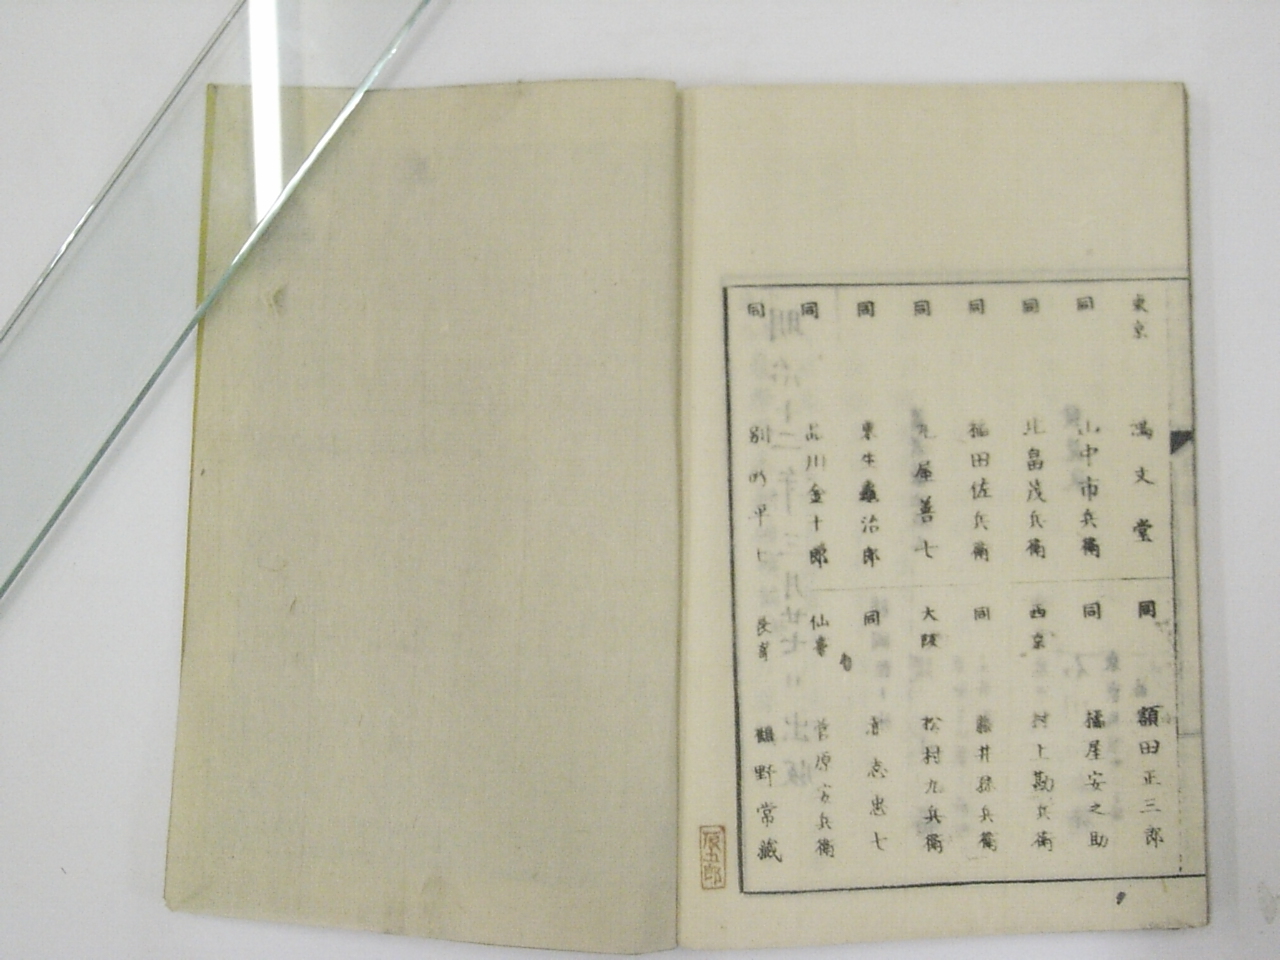 東京 満文堂
同 山中市兵衛
同 北畠茂兵衛
同 福田佐兵衛
同 丸屋善七
同 東生亀治郎
同 品川金十郎
同 別所平七
同 額田正三郎
同 橘屋安之助
西京 村上勘兵衛
同 藤井孫兵衛
大阪 松村九兵衛
同 志忠七
仙台 菅原安兵衛
長崎 鶴野常蔵
辰五郎
明治十二年三月廿七日出版